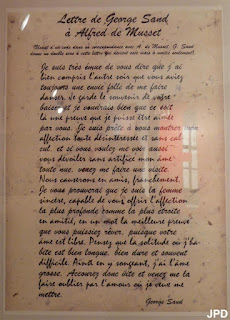 Lettre de George Sand
à Alfred de Musset
Je suis très émue de vous dire que j'ai
bien compris l'autre soir que vous aviez
toujours une envie folle de me faire
danser. Je garde le souvenir de votre
baiser et je voudrais bien que ce soit
là une preuve que je puisse être aimée
par vous. Je suis prête à vous montrer mon
affection toute désintéressée et sans cal-
cul, et si vous voulez me voir aussi
vous dévoiler sans artifice mon âme
toute nue, venez me faire une visite.
Nous causerons en amis, franchement.
Je vous prouverai que je suis la femme
sincère, capable de vous offrir l'affection
la plus profonde comme la plus étroite
en amitié, en un mot la meilleure preuve
que vous puissiez rêver, puisque votre
âme est libre. Pensez que la solitude où j'ha-
bite est bien longue, bien dure et souvent
difficile. Ainsi en y songeant, j'ai l'âme
grosse. Accourez donc vite et venez me la
faire oublier par l'amour où je veux me
mettre.
George Sand
JPD